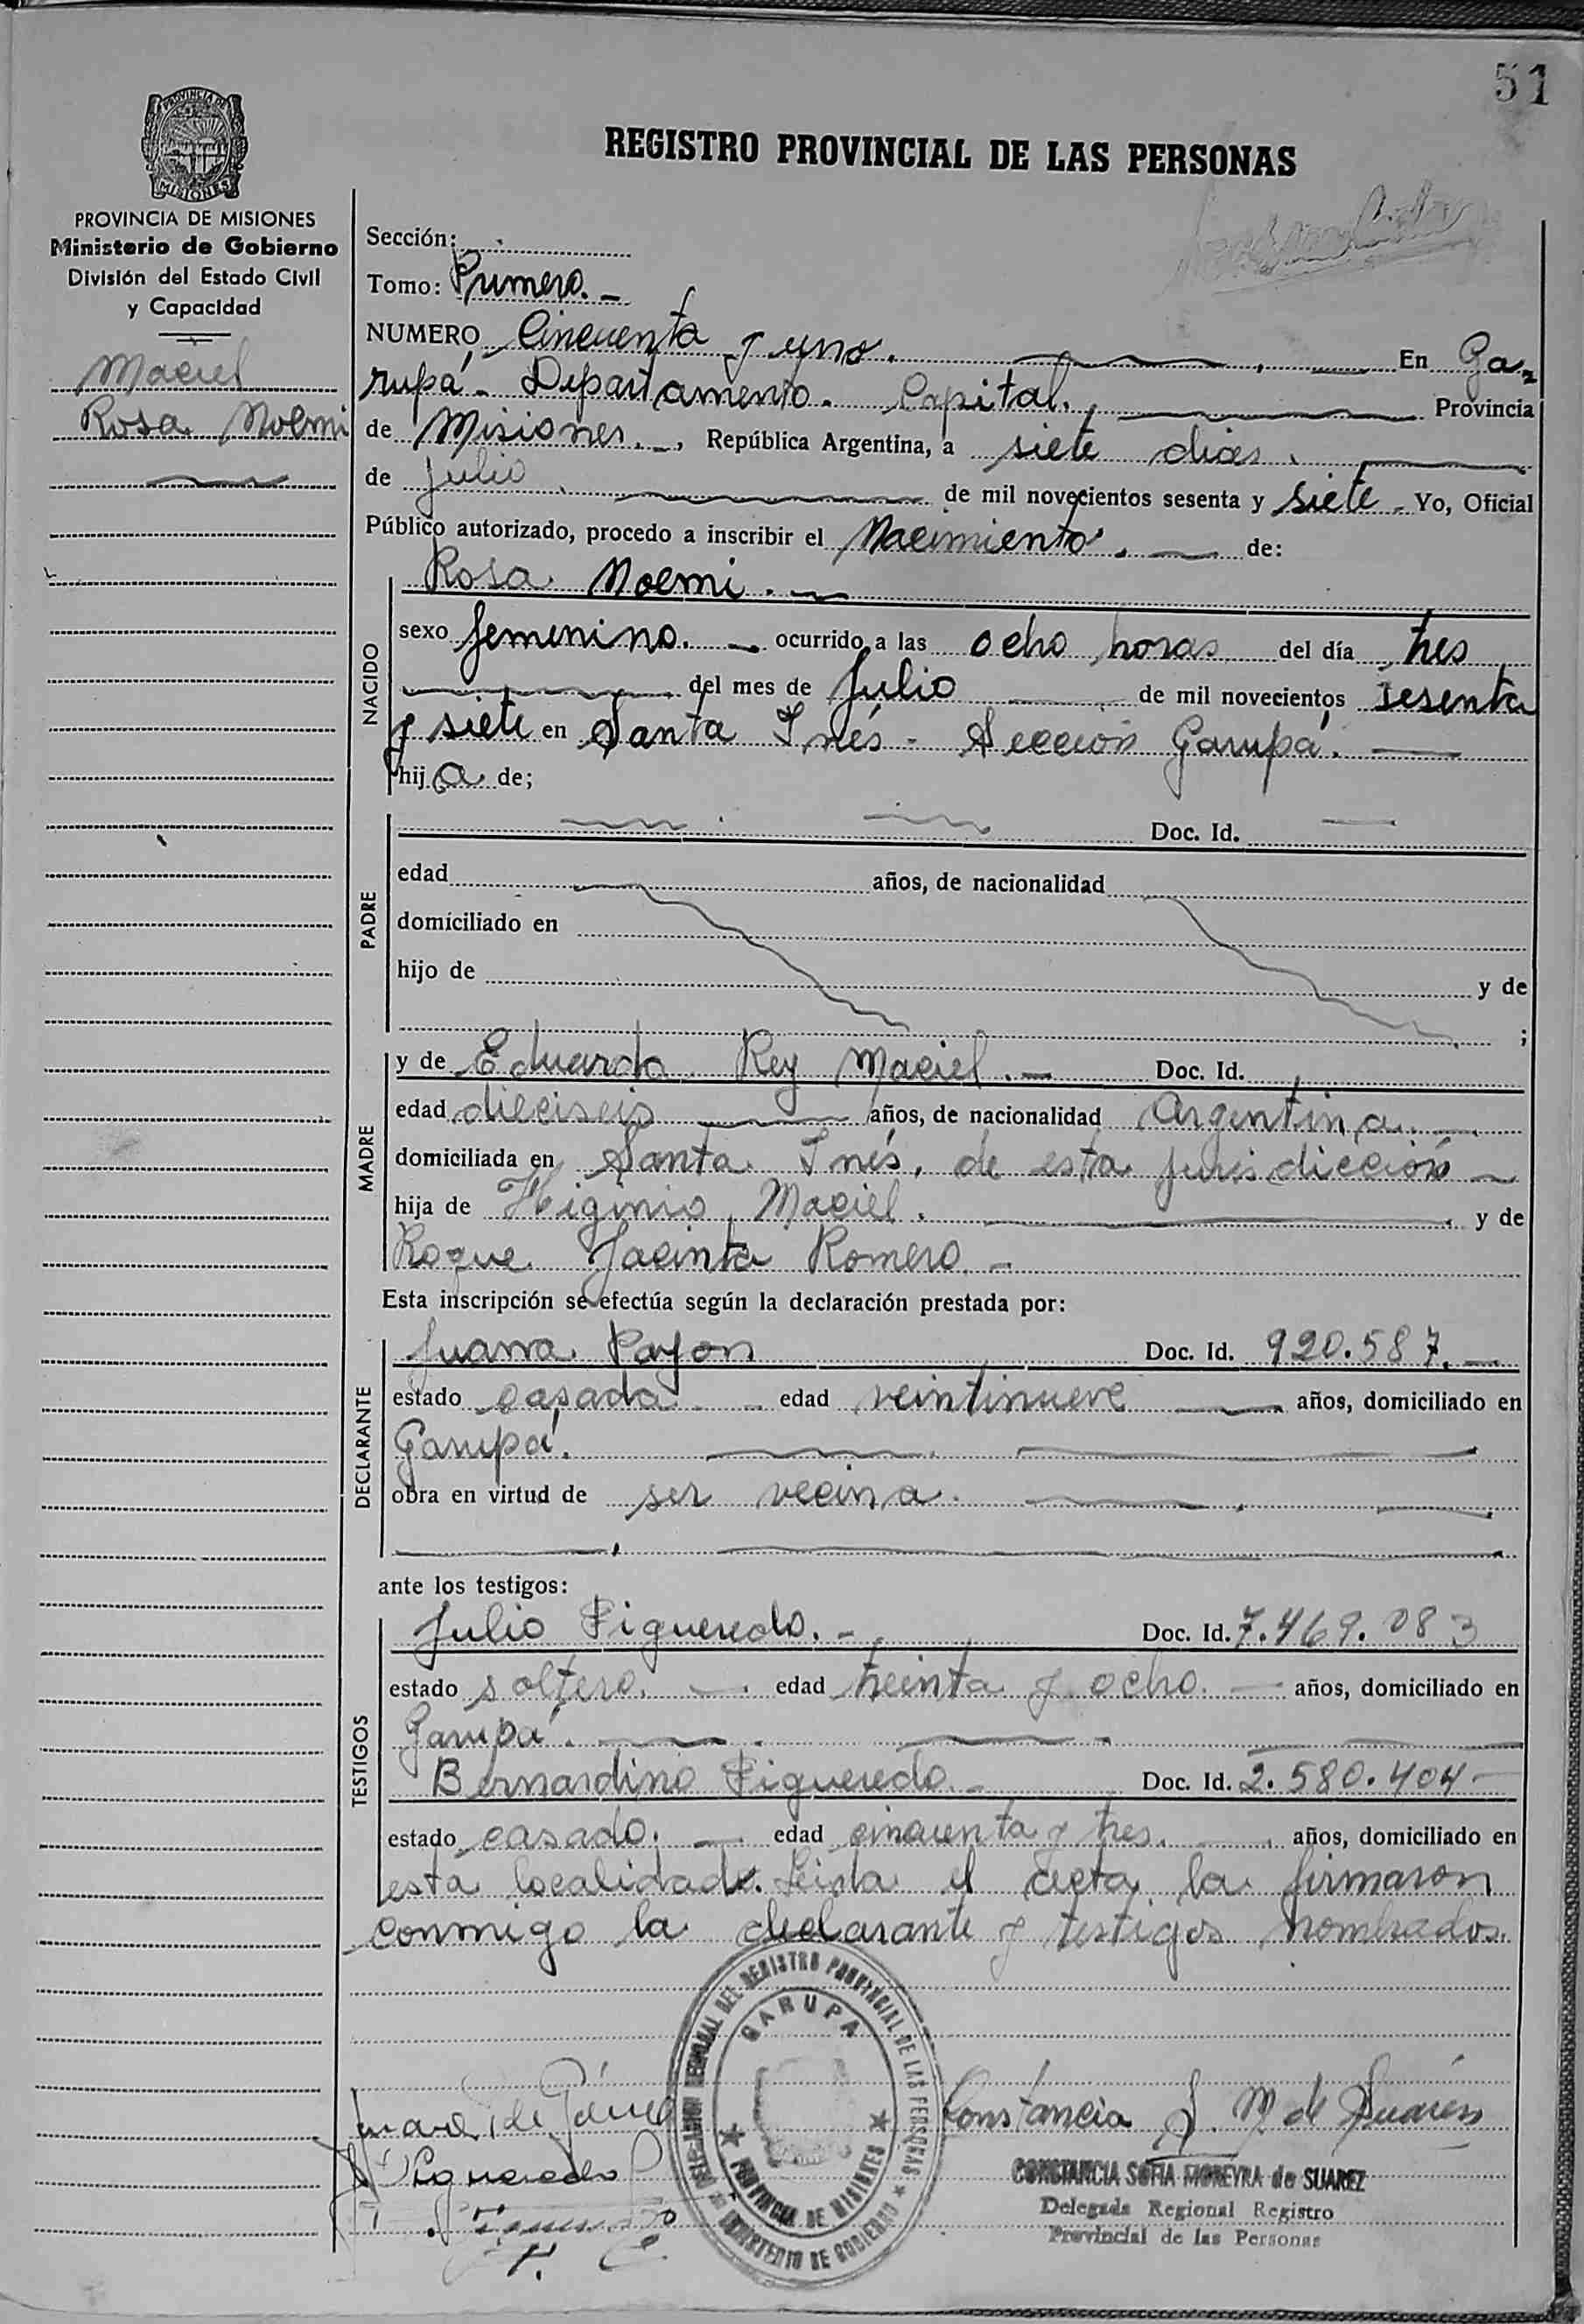 51
PROVINCIA DE
MISIONES
REGISTRO PROVINCIAL DE LAS PERSONAS
PROVINCIA DE MISIONES
Ministerio de Gobierno
División del Estado Civil
y Capacidad
Maciel
Rosa Noemi
Sección:
Tomo: Primero. -
NUMERO Cincuenta y uno. En Ga-
rupá - Departamento. Capital. Provincia
de Misiones. -, República Argentina, a siete dias.
de Julio de mil novecientos sesenta y siete - Yo, Oficial
Público autorizado, procedo a inscribir el Nacimiento. de:
Rosa Noemi. -
NACIDO
sexo femenino. - ocurrido a las ocho horas del día tres
del mes de Julio de mil novecientos sesenta
y siete en Santa Inés - Sección Garupá.
hija de;
PADRE
Doc. Id.
edad años, de nacionalidad
domiciliado en
hijo de y de
;
MADRE
y de Eduarda Rey Maciel. - Doc. Id.
edad dieciseis años, de nacionalidad Argentina. -
domiciliada en Santa Inés, de esta jurisdicción -
hija de Higinio Maciel. y de
Roque Jacinta Romero. -
Esta inscripción se efectúa según la declaración prestada por:
DECLARANTE
Juana Doc. Id. 920.587. -
estado casada - edad veintinueve años, domiciliado en
Garupá.
obra en virtud de ser vecina.
ante los testigos:
TESTIGOS
Julio Figueredo. - Doc. Id. 7.469.083
estado soltero. - edad treinta y ocho. - años, domiciliado en
Garupá.
Bernardino Figueredo. - Doc. Id. 2.580.404 -
estado casado. - edad cincuenta y tres. - años, domiciliado en
esta localidad. Leida el acta la firmaron
conmigo la declarante y testigos nombrados.
DELEGACION REGIONAL DEL REGISTRO PROVINCIAL DE LAS PERSONAS
MINISTERIO DE GOBIERNO
GARUPA
PROVINCIA DE MISIONES
Juana de
Figueredo
Constancia S. M de Suárez
CONSTANCIA SOFIA MOREYRA de SUAREZ
Delegada Regional Registro
Provincial de las Personas